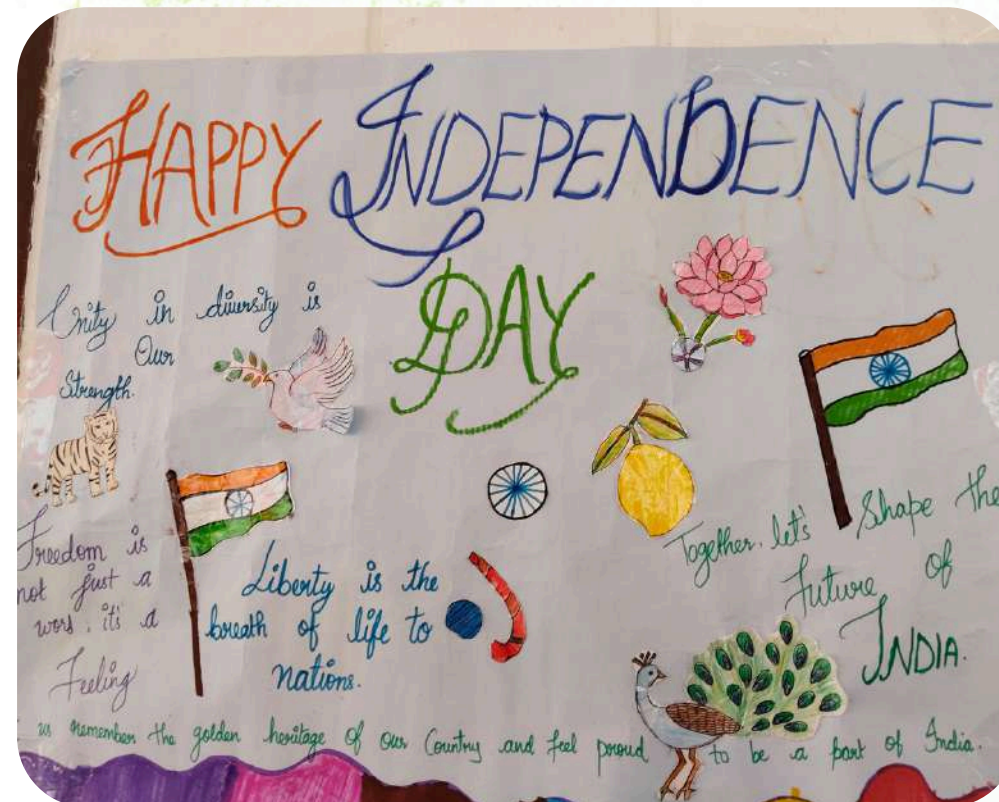 HAPPY INDEPENDENCE
DAY
Unity in diversity is
Our
Strength.
Freedom is
not just a
word, it's a
Feeling
Liberty is the
breath of life to
nations.
Together, let's Shape the
Future of
INDIA.
us remember the golden heritage of our Country and feel proud to be a part of India.